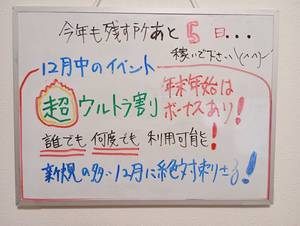 今年も残す所あと5日...
稼いで下さい\(^^)/
12月中のイベント
超ウルトラ割
年末年始は
ボーナスあり!
誰でも何度でも利用可能!
新規の多い12月に絶対刺さる!